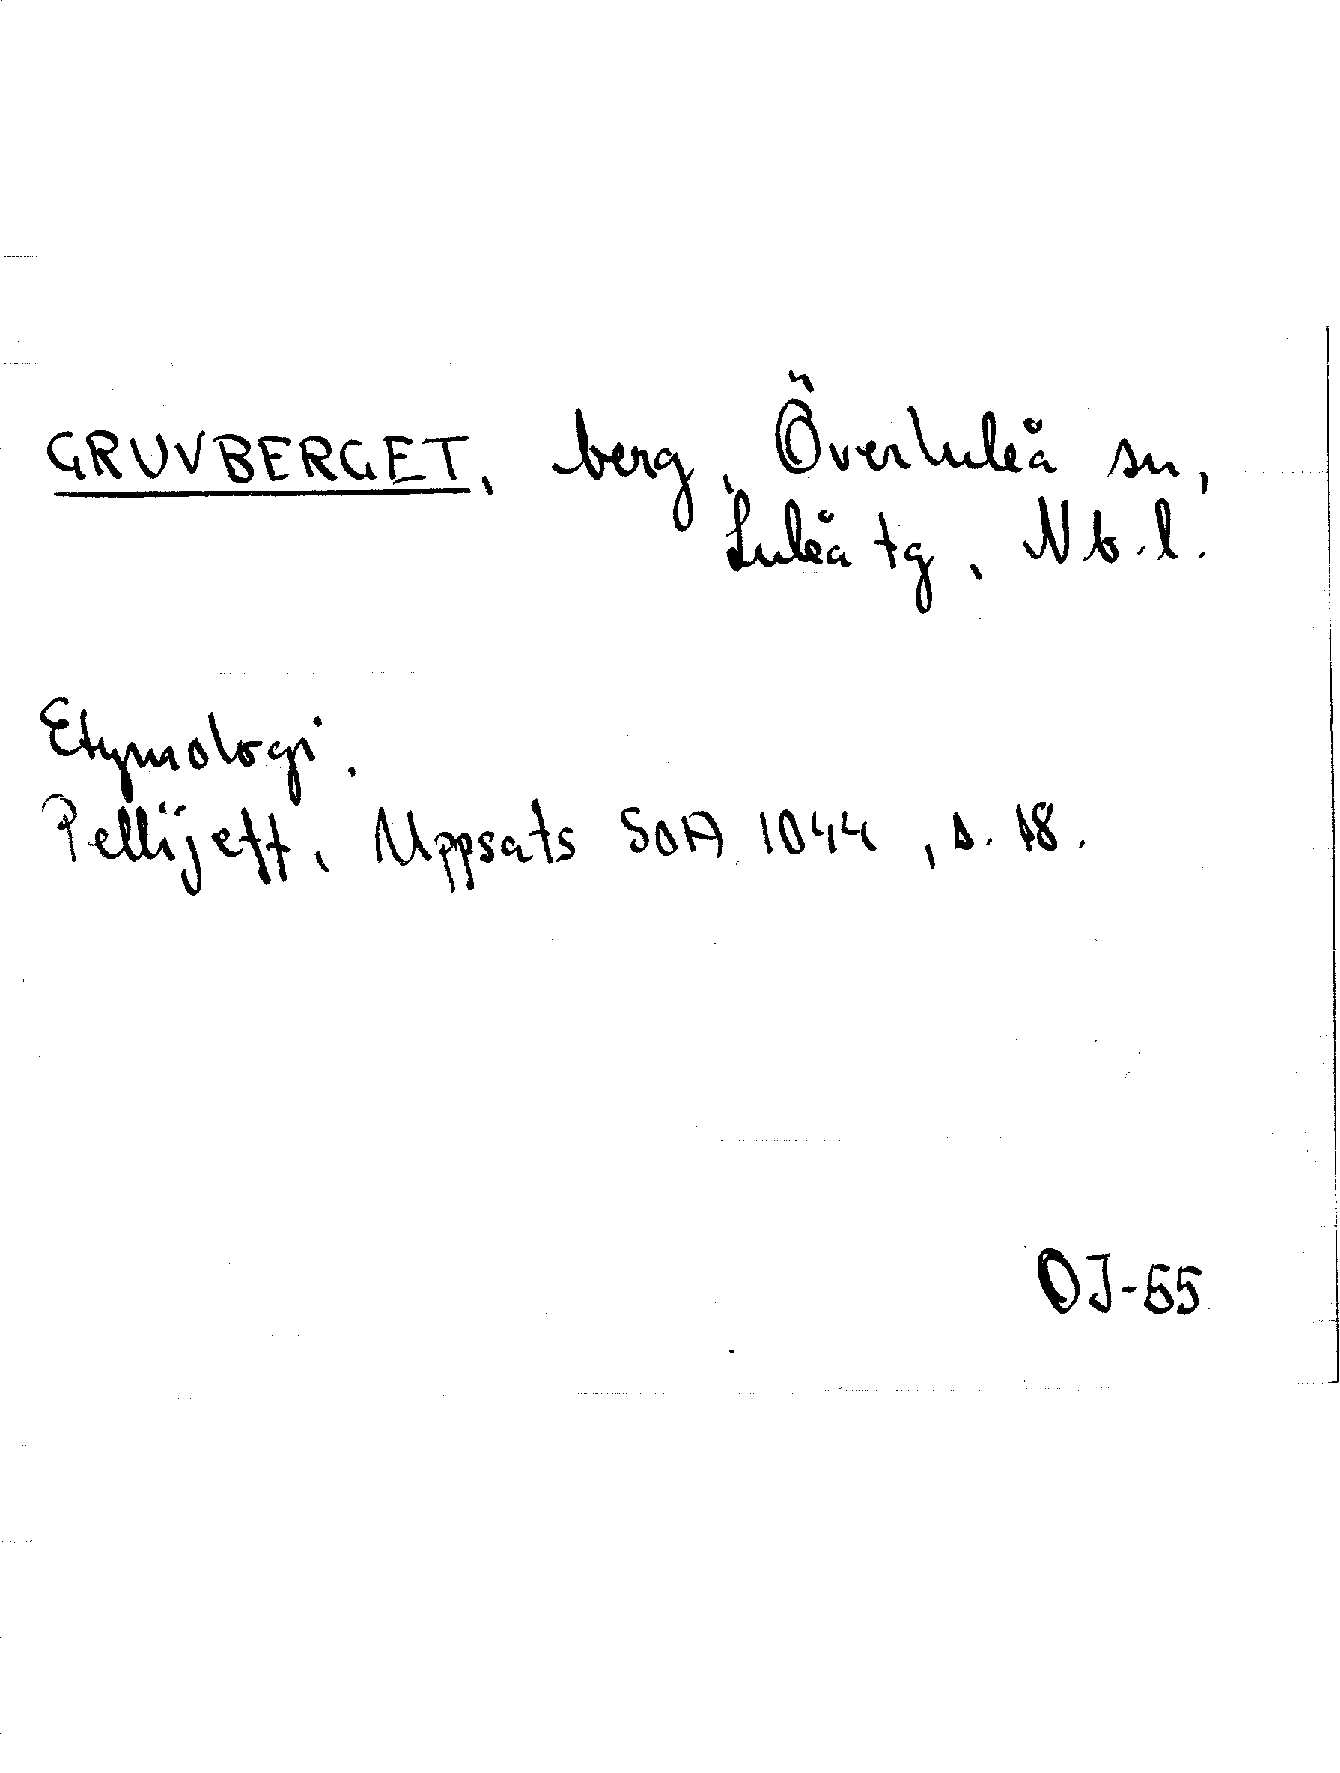 GRUVBERGET, berg, Överluleå sn,
Luleå tg, Nb.l.
Etymologi.
Pellijeff, Uppsats SOA 1044, s. 18.
OJ-65